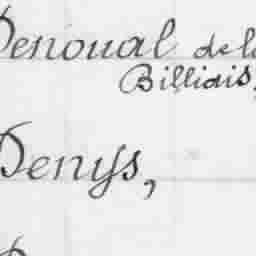 Denoual de la
Billiais,
Denys,